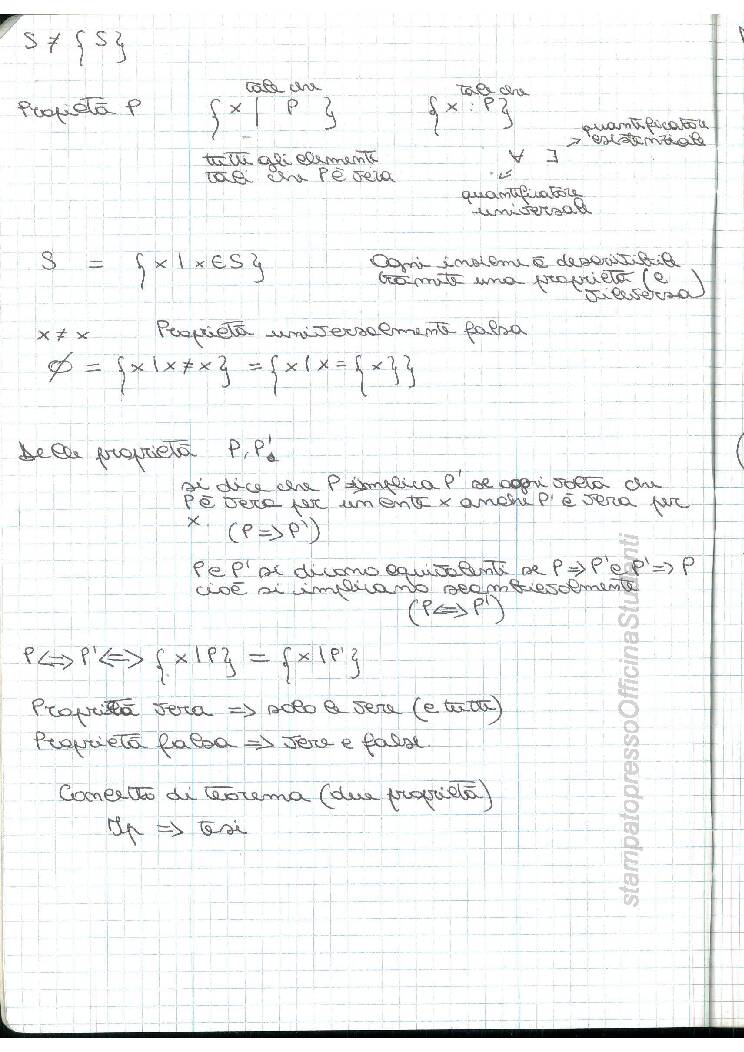 S ≠ { S }
tale che tale che
Proprietà P { x | P } { x : P }
quantificatore
esistenziale
tutti gli elementi ∀ ∃
tali che P è vera
quantificatore
universale
S = { x | x ∈ S } Ogni insieme è descrivibile
tramite una proprietà (e
viceversa)
x ≠ x Proprietà universalmente falsa
∅ = { x | x ≠ x } = { x | x = { x } }
Delle proprietà P, P'
si dice che P implica P' se ogni volta che
P è vera per un ente x anche P' è vera per
x. (P => P')
P e P' si dicono equivalenti se P => P' e P' => P
cioè si implicano scambievolmente
(P <=> P')
P <=> P' <=> { x | P } = { x | P' }
Proprietà vera => solo le vere (e tutte)
Proprietà falsa => vere e false.
Concetto di teorema (due proprietà)
Ip => tesi
stampatopressoOfficinaStudenti